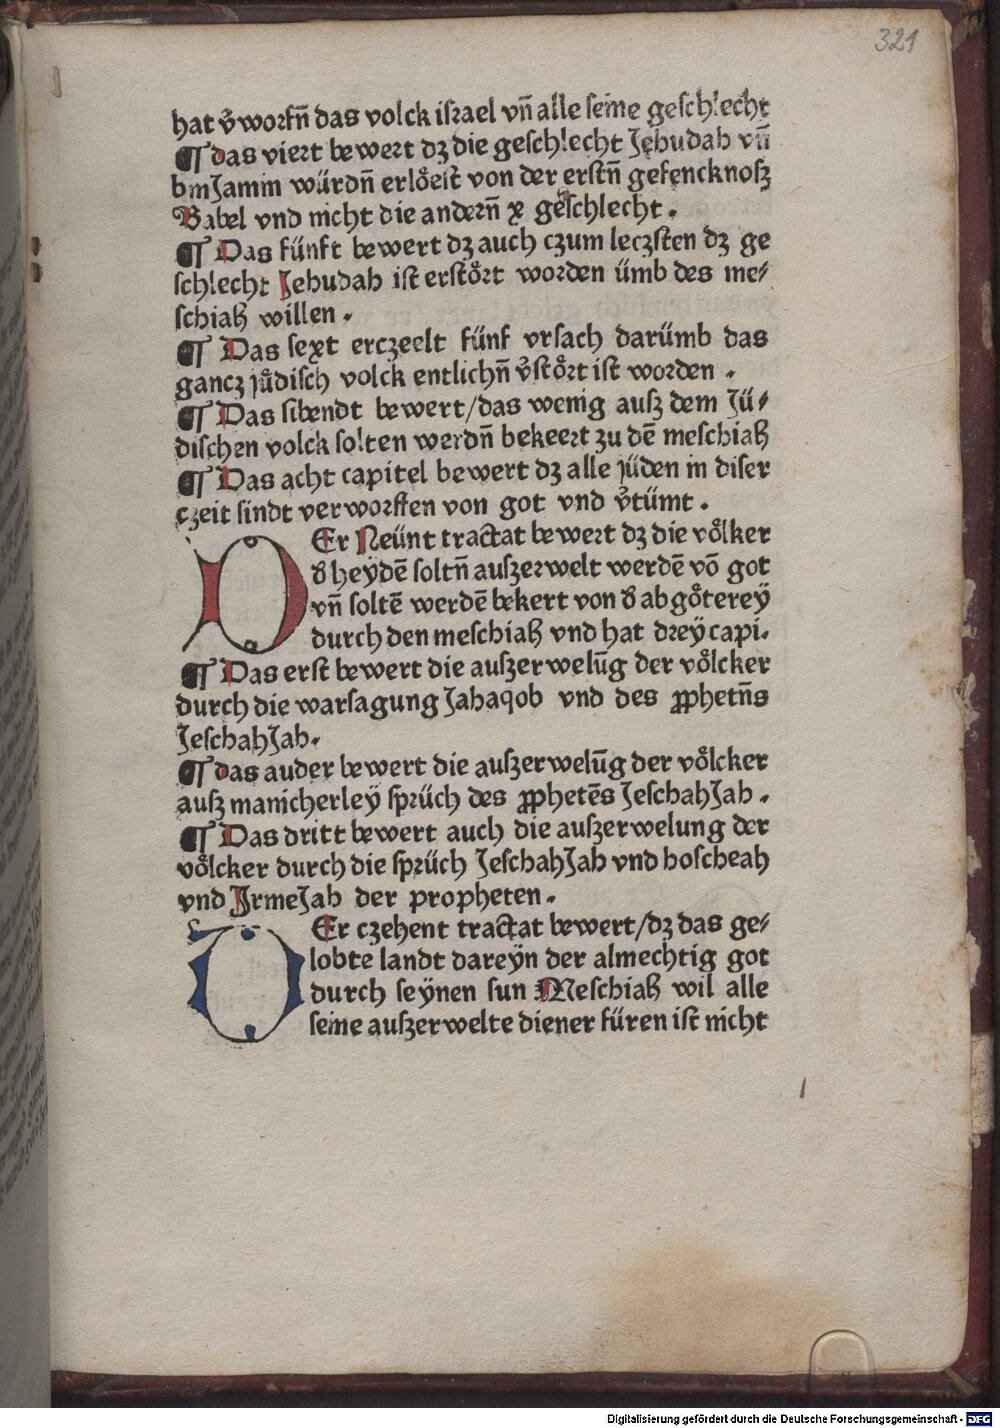 321
hat v̄worfn̄ das volck israel vn̄ alle seine geschlecht
¶ das viert bewert dz die geschlecht Jehudah vn̄
binJamin würdn̄ erlöeist von der erstn̄ gefencknosz
Babel vnd nicht die andern̄ x geschlecht.
¶ Das fünft bewert dz auch czum leczsten dz ge
schlecht Jehudah ist erstört worden ümb des me-
schiaß willen.
¶ Das sext erczeelt fünf vrsach darümb das
gancz jůdisch volck entlichn̄ v̄stört ist worden.
¶ Das sibendt bewert/das wenig ausz dem Jü-
dischen volck solten werdn̄ bekeert zu dē meschiaß
¶ Das acht capitel bewert dz alle jüden in diser
czeit sindt verworffen von got vnd v̄tümt.
DEr Neünt tractat bewert dz die völker
d̄ heydē soltn̄ auszerwelt werdē vō got
vn̄ soltē werdē bekert von d̄ abgöterey
durch den meschiaß vnd hat drey capi.
¶ Das erst bewert die auszerwelūg der völcker
durch die warsagung Jahaqob vnd des ꝓphetn̄s
JeschahJah.
¶ das auder bewert die auszerwelūg der völcker
ausz manicherley sprüch des ꝓphetēs JeschahJah.
¶ Das dritt bewert auch die auszerwelung der
völcker durch die sprüch JeschahJah vnd hoscheah
vnd JrmeJah der propheten.
DEr czehent tractat bewert/dz das ge-
lobte landt dareyn der almechtig got
durch seynen sun Meschiaß wil alle
seine auszerwelte diener füren ist nicht
Digitalisierung gefördert durch die Deutsche Forschungsgemeinschaft - DFG